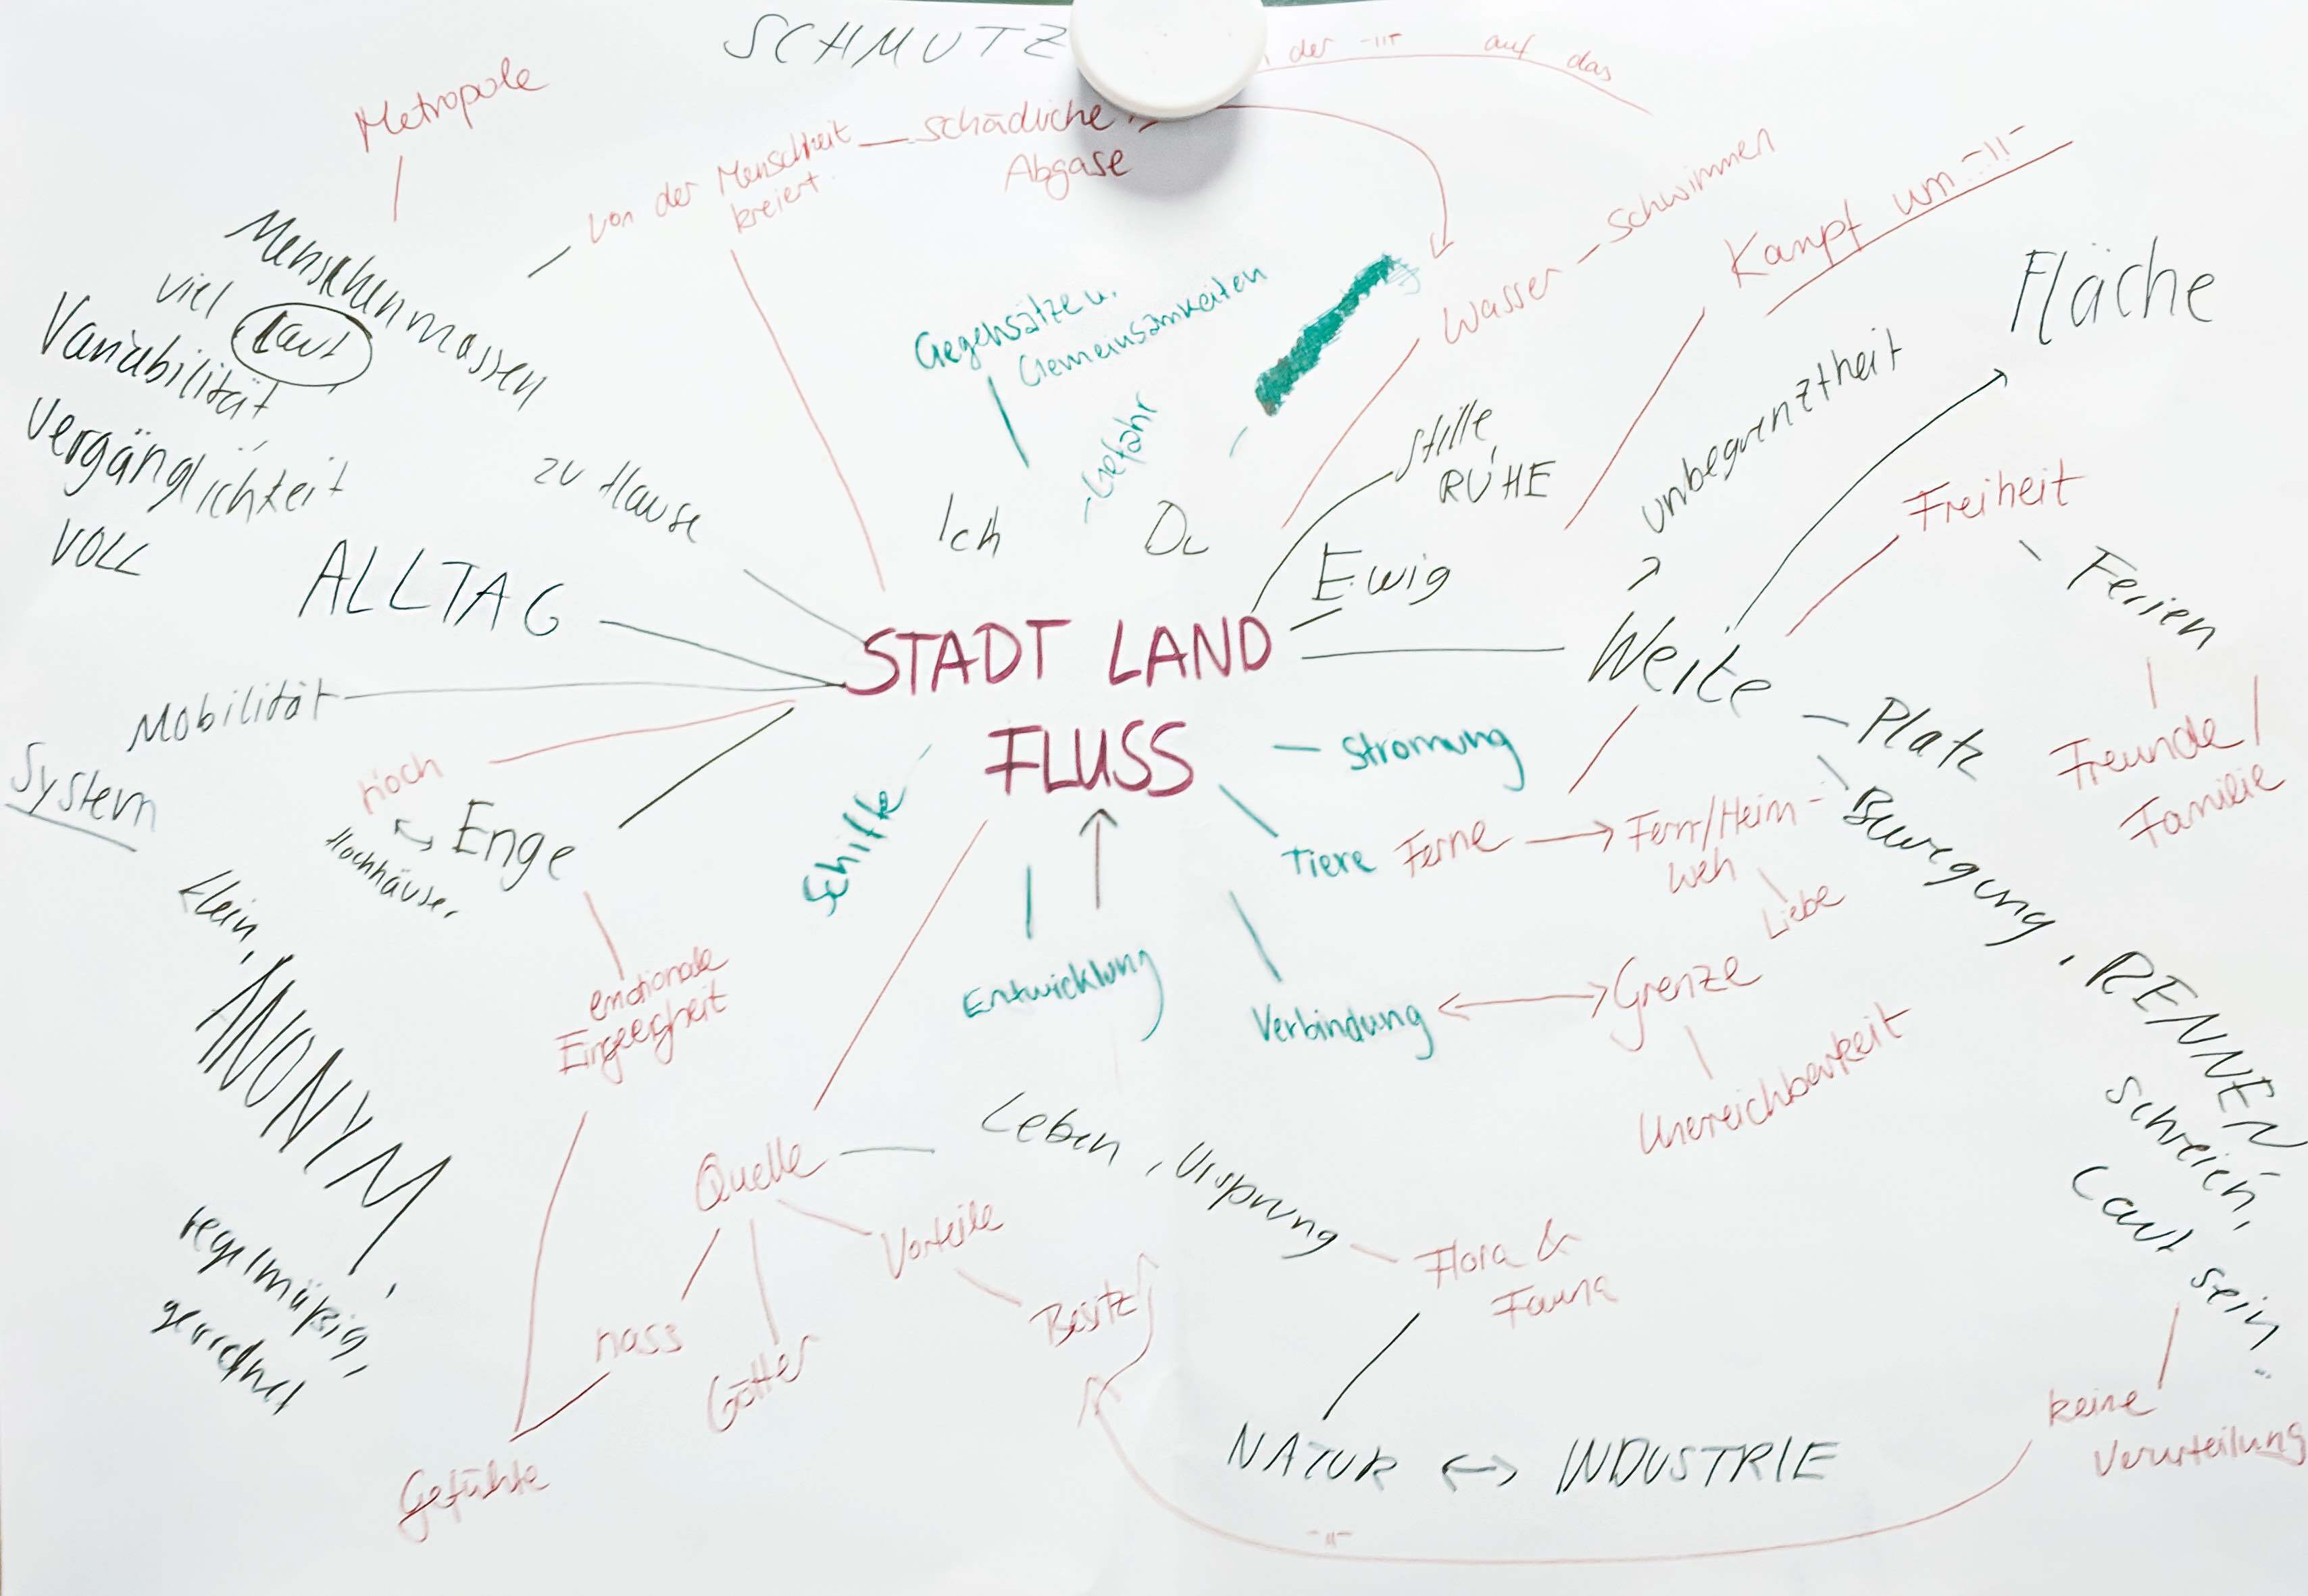 SCHMUTZ
der -||- auf das
Metropole
von der Menschheit
kreiert.
schädliche
Abgase
Schwimmen
Wasser
Kampf um -||-
Fläche
Menschenmassen
viel
laut
Variabilität
Vergänglichkeit
VOLL
zu Hause
Gegensätze u.
Gemeinsamkeiten
Gefahr
Ich
Du
Stille,
RUHE
Ewig
unbegrenztheit
Freiheit
Ferien
Freunde/
Familie
ALLTAG
Mobilität
System
hoch
Hochhäuser
Enge
STADT LAND
FLUSS
Weite
Platz
Bewegung, RENNEN
Schreien,
Laut sein
keine
Verurteilung
Strömung
Tiere
Ferne
Fern/Heim-
weh
Liebe
Schiffe
Entwicklung
Verbindung
Grenze
Unerreichbarkeit
klein,
ANONYM,
regelmäßig,
geordnet
emotionale
Eingeengheit
Quelle
Leben, Ursprung
Flora &
Fauna
Vorteile
Besitz
nass
Götter
Gefühle
NATUR INDUSTRIE
-||-